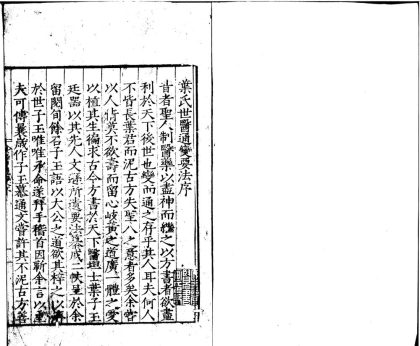 葉氏世醫通變要法序
昔者聖人制醫藥以盡神而繼之以方書者欲盡
利於天下後世也變而通之存乎其人耳夫何人
不皆長葉君而泥古方失聖人之意者多矣余嘗
以人情莫不欲壽而留心岐黃之道廣一體之愛
以植其生徧求古今方書於天下醫士葉子王
廷器以其先人文涵所遺要法集成二帙呈於余
留閱旬餘召子王語以大公之道欲其梓之以
於世子王唯唯承命遂拜手稽首因靳余言以
夫可傳畧歲作子王慕通文嘗許其不泥古方善